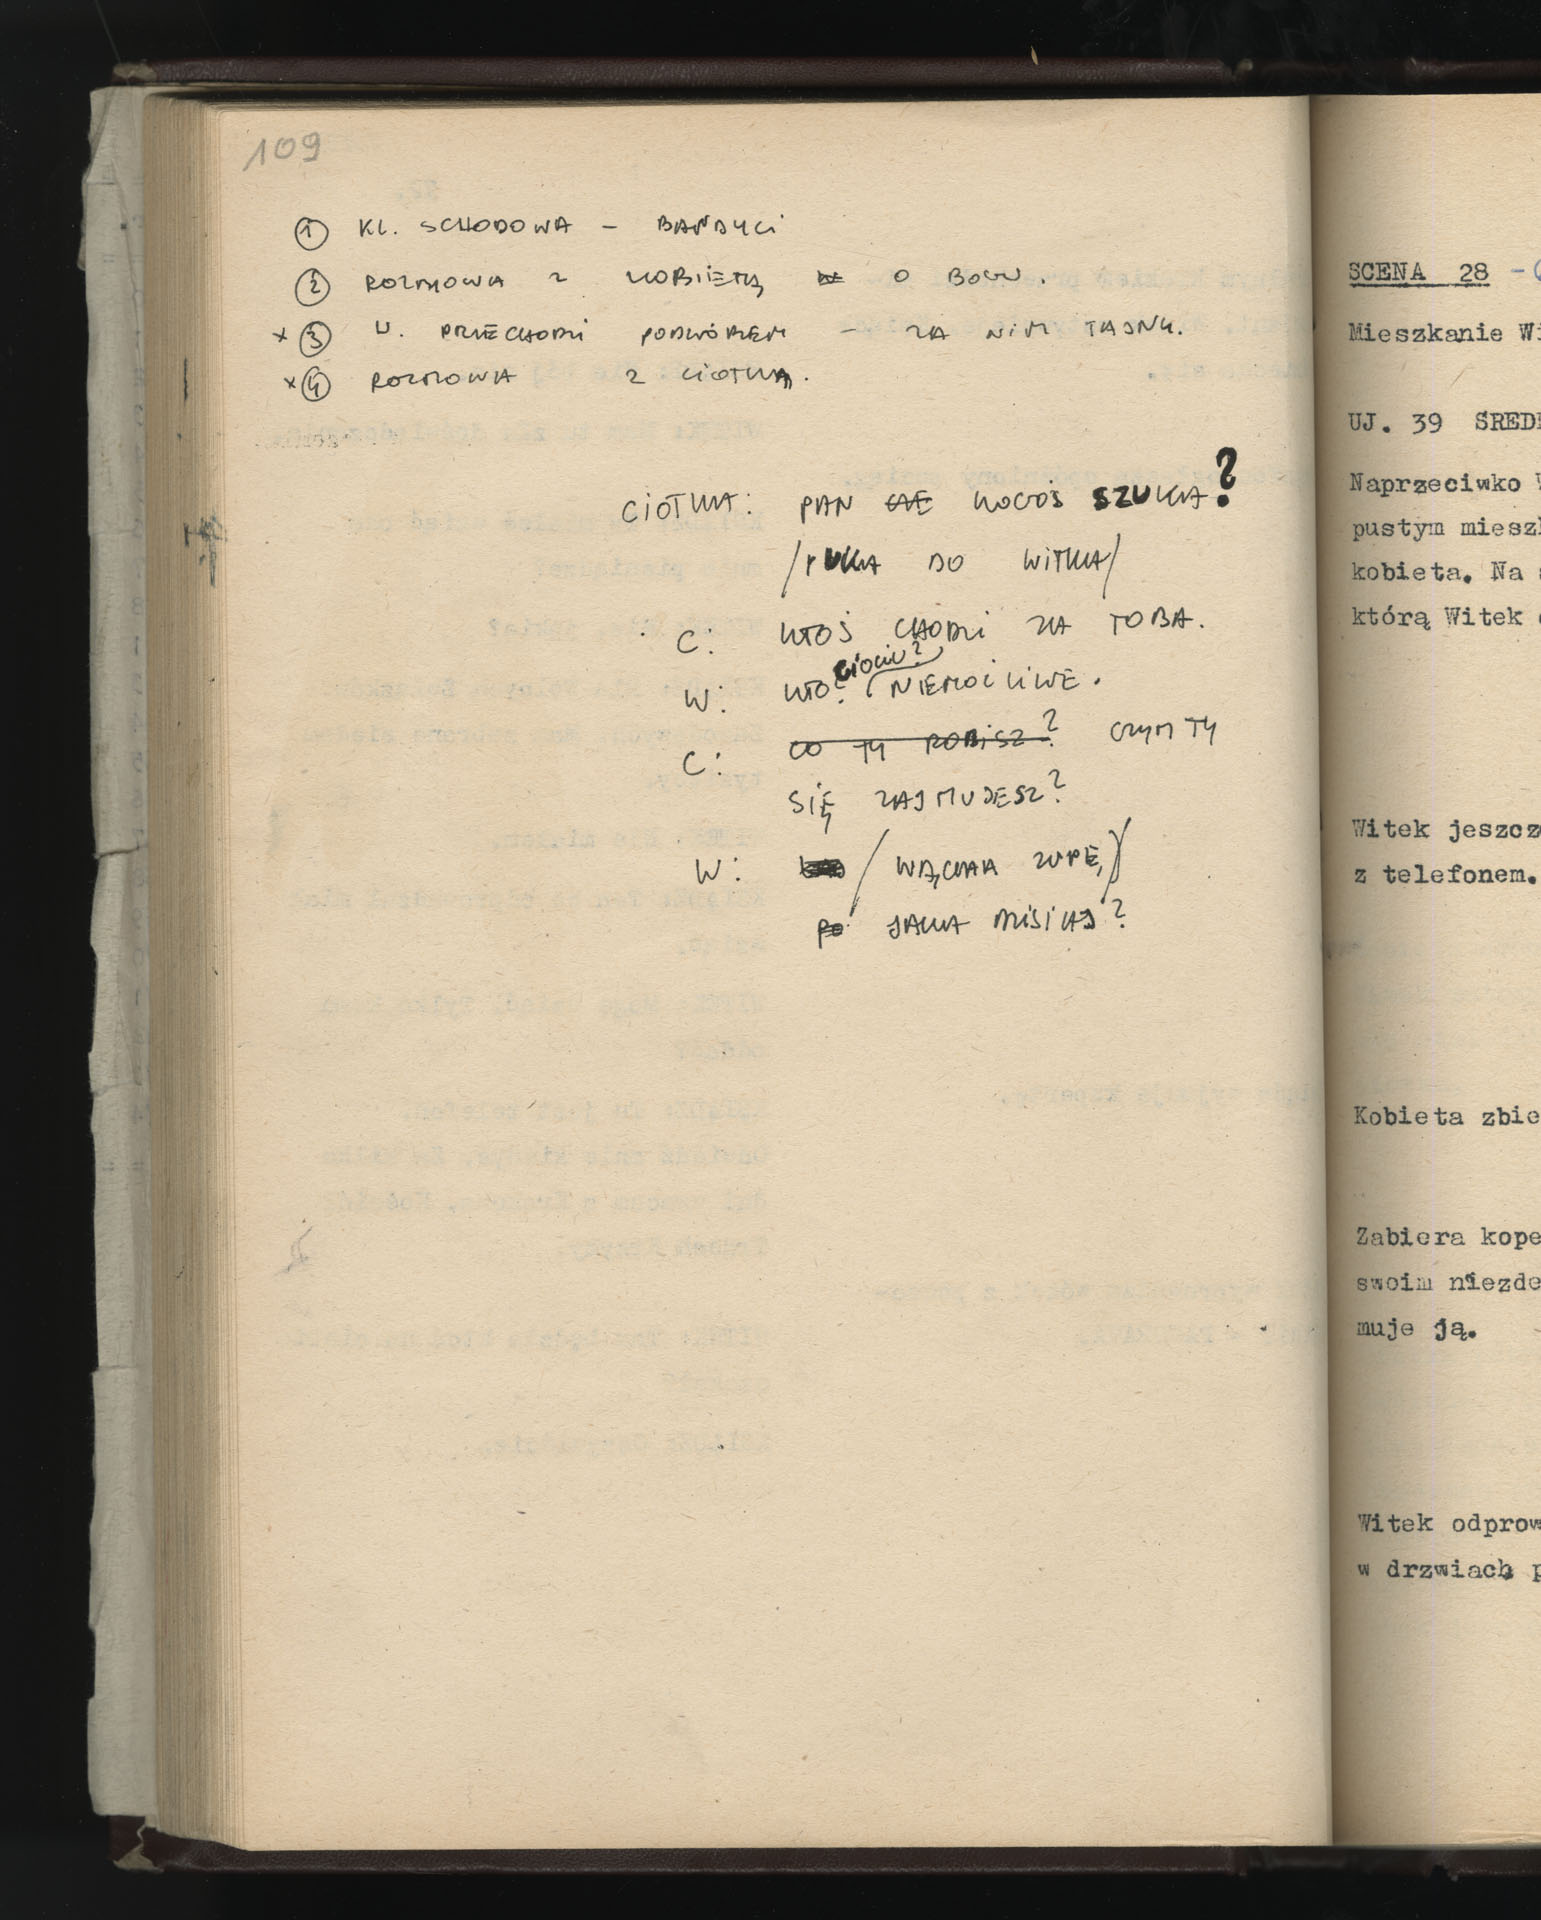 109
① KL. SCHODOWA – BANDYCI
② ROZMOWA Z KOBIETĄ O BOGU.
x ③ W. PRZECHODZI PODWÓRZEM – ZA NIM TAJNY.
x ④ ROZMOWA Z CIOTKĄ.
CIOTKA: PAN KOGOŚ SZUKA?
/PUKA DO WITKA/
C: KTOŚ CHODZI ZA TOBĄ.
ciociu?
W: KTO? NIEMOŻLIWE.
C: CO TY ROBISZ? CZYM TY
SIĘ ZAJMUJESZ?
W: /WĄCHA ZUPĘ/
JAKA DZISIAJ?
SCENA 28 –
Mieszkanie Wi
UJ. 39 ŚRED
Naprzeciwko W
pustym miesz
kobieta. Na
którą Witek
Witek jeszcz
z telefonem.
Kobieta zbie
Zabiera kope
swoim niezde
muje ją.
Witek odprow
w drzwiach p